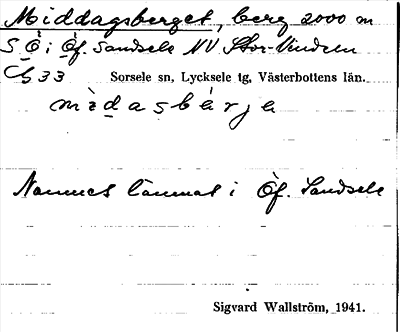 Middagsberget, berg 2000 m
S Ö i Öf. Sandsele NV Stor-Vindeln
33
Sorsele sn, Lycksele tg, Västerbottens län.
mìdasbárja
Namnet lämnat i Öf. Sandsele
Sigvard Wallström, 1941.